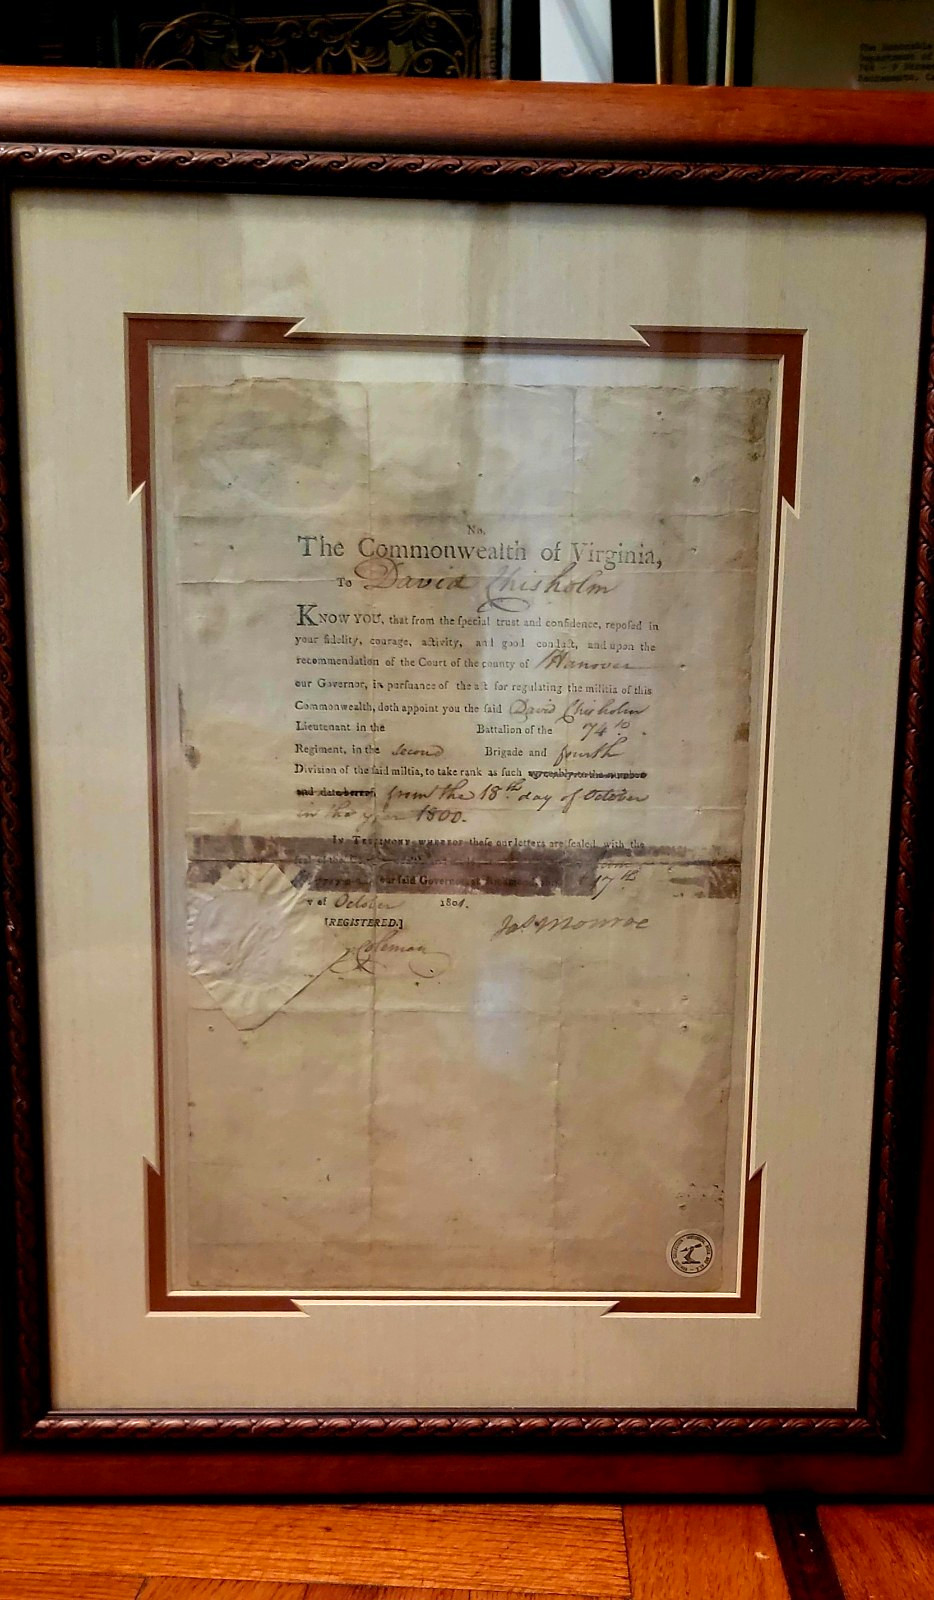 The Honorable
Department of
No.
The Commonwealth of Virginia,
To David Chisholm
KNOW YOU, that from the special trust and confidence, reposed in
your fidelity, courage, activity, and good conduct, and upon the
recommendation of the Court of the county of Hanover
our Governor, in pursuance of the act for regulating the militia of this
Commonwealth, doth appoint you the said David Chisholm
Lieutenant in the Battalion of the 74th
Regiment, in the second Brigade and fourth
Division of the said militia, to take rank as such agreeably to the number
and date hereof, from the 18th day of October
in the year 1800.
IN TESTIMONY WHEREOF these our letters are sealed with the
seal of the
our said Governor at 17th
of October 1801.
[REGISTERED.] Jas Monroe
Coleman